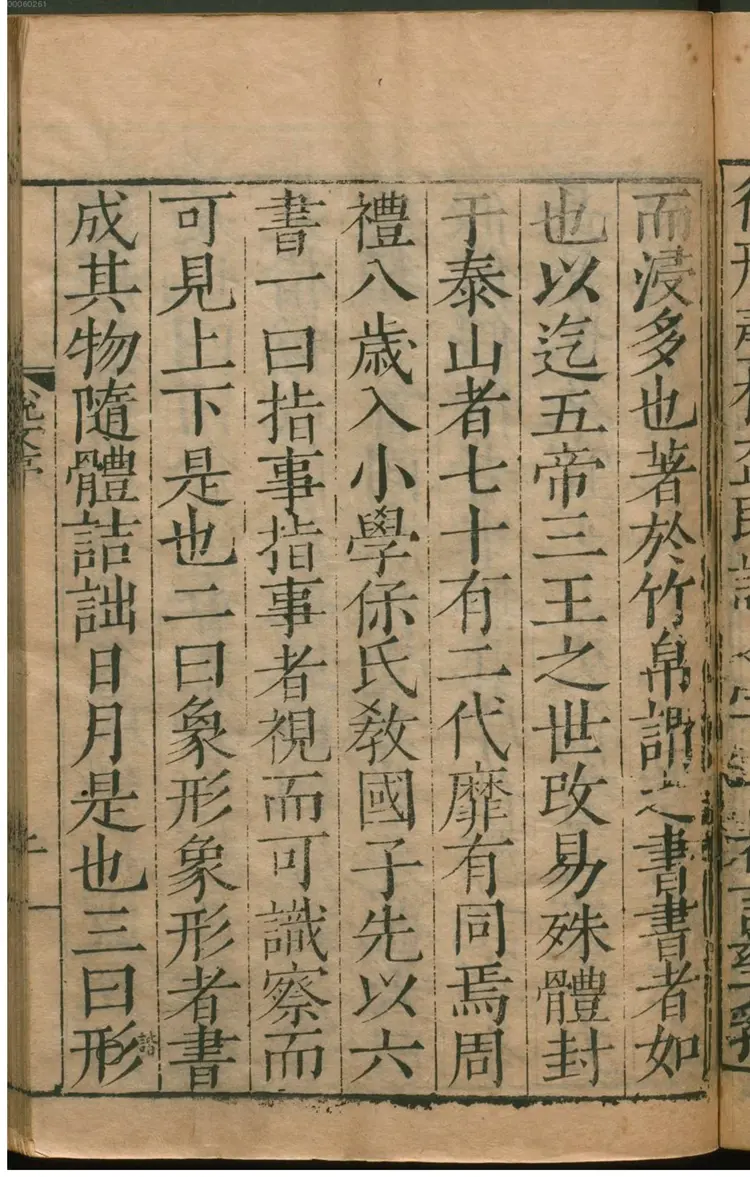 00060261
而浸多也著於竹帛謂之書書者如
也以迄五帝三王之世改易殊體封
于泰山者七十有二代靡有同焉周
禮八歲入小學保氏敎國子先以六
書一曰指事指事者視而可識察而
可見上下是也二曰象形象形者書
成其物隨體詰詘日月是也三曰形
諧
說文序
上